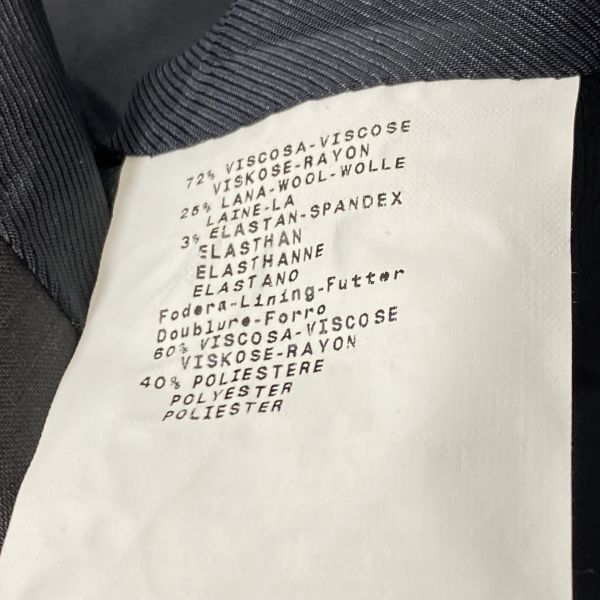 72% VISCOSA-VISCOSE
VISKOSE-RAYON
25% LANA-WOOL-WOLLE
LAINE-LA
3% ELASTAN-SPANDEX
ELASTHAN
ELASTHANNE
ELASTANO
Fodera-Lining-Futter
Doublure-Forro
60% VISCOSA-VISCOSE
VISKOSE-RAYON
40% POLIESTERE
POLYESTER
POLIESTER